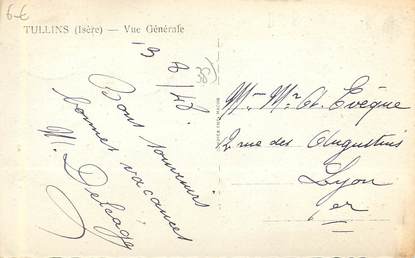 6-€
TULLINS (Isère) — Vue Générale
19 8/48.
(38)
Bons souvenirs
bonnes vacances
M. Delcage
Mme Mr A. Evêque
2 rue des Augustins
Lyon
1er